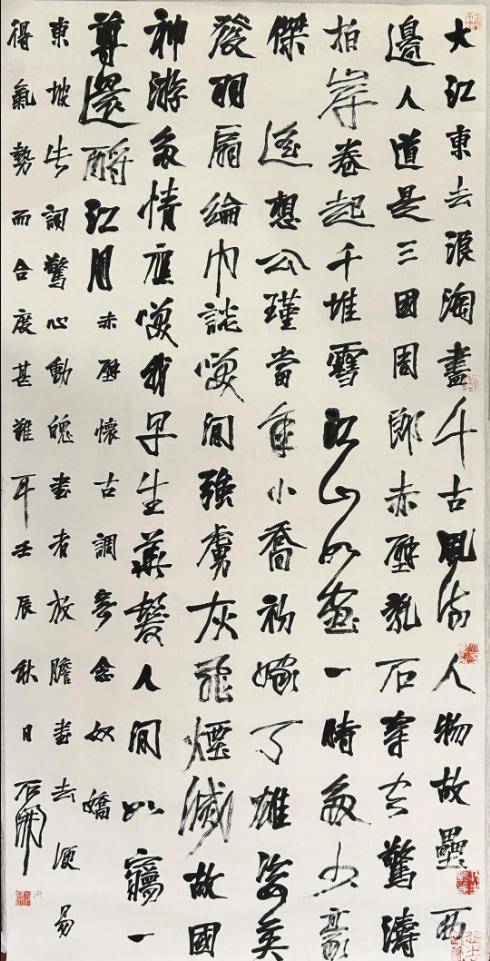 大江東去浪淘盡千古風流人物故壘西
邊人道是三國周郎赤壁亂石穿空驚濤
拍岸卷起千堆雪江山如畫一時多少豪
傑遥想公瑾當年小喬初嫁了雄姿英
發羽扇綸巾談笑間強虜灰飛煙滅故國
神游多情應笑我早生華髮人間如㝱一
尊還酹江月赤壁懷古調寄念奴嬌
東坡此詞驚心動魄書者放膽書去便易
得氣勢而合度甚難耳壬辰秋日石